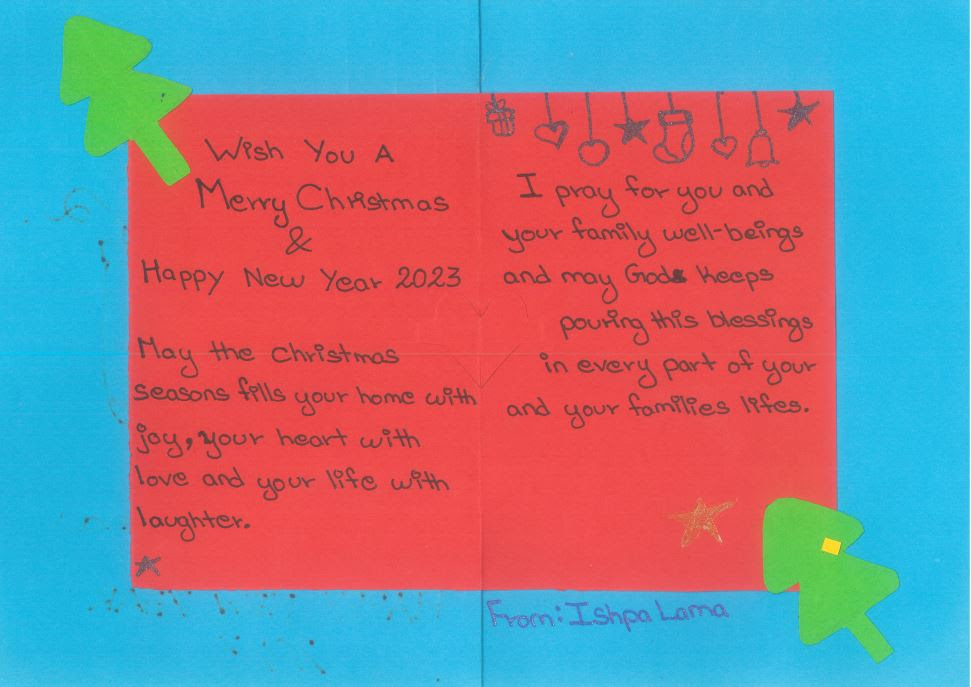 Wish You A
Merry Christmas
&
Happy New Year 2023
May the christmas
seasons fills your home with
joy, your heart with
love and your life with
laughter.
I pray for you and
your family well-beings
and may God keeps
pouring this blessings
in every part of your
and your families lifes.
From: Ishpa Lama